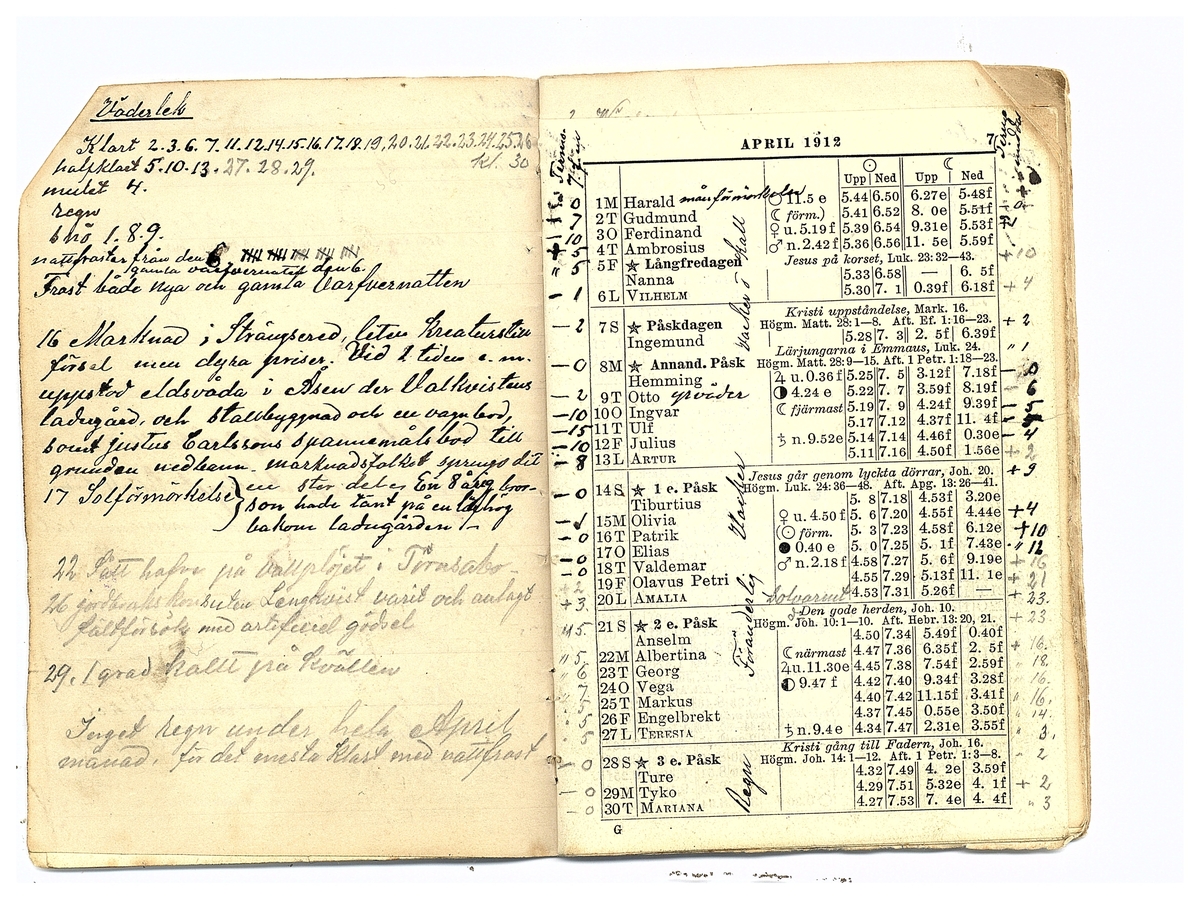 Väderlek
Klart 2.3.6. 7.11.12.14.15.16.17.18.19.20.21.22.23.24.25.26
halfklart 5.10.13.27.28.29. Kl. 30
mulet 4.
regn
snö 1.8.9.
nattfroster från den 6
gamla varfvernatten den 6.
Frost både nya och gamla Varfvernatten
16 Marknad i Strängsered, liten Kreaturstill
försel men dyra priser. Vid 2 tiden e.m.
uppstod eldsvåda i Åsen der Valkvistens
ladugård, och stallbyggnad och en vagnbod,
samt Justus Carlssons spannemålsbod till
grunden nedbrann. marknadsfolket sprungo dit
17 Solförmörkelse en stor del es En 8 årig bror-
son hade tänt på en hög
bakom ladugården
22 Sått hafre på Vallplöjet i
26 jordbrukskonsulen Lengkvist varit och anlagt
fältförsök med artificiel gödsel
29. 1 grad kallt på Kvällen
Inget regn under hela April
månad. för det mesta klart med nattfrost
APRIL 1912 7
Upp Ned Upp Ned
1 M Harald månförmörkelse 11.5 e 5.44 6.50 6.27e 5.48f
2 T Gudmund ☾ förm.) 5.41 6.52 8. 0e 5.51f
3 O Ferdinand ♀ u. 5.19 f 5.39 6.54 9.31e 5.53f
4 T Ambrosius ♂ n. 2.42 f 5.36 6.56 11. 5e 5.59f
5 F ★ Långfredagen Jesus på korset, Luk. 23: 32—43.
Nanna 5.33 6.58 — 6. 5f
6 L VILHELM 5.30 7. 1 0.39f 6.18f
Vacker o kall
Kristi uppståndelse, Mark. 16.
7 S ★ Påskdagen Högm. Matt. 28: 1—8. Aft. Ef. 1: 16—23.
Ingemund 5.28 7. 3 2. 5f 6.39f
Lärjungarna i Emmaus, Luk. 24.
8 M ★ Annand. Påsk Högm. Matt. 28: 9—15. Aft. 1 Petr. 1: 18—23.
Hemming ♃ u. 0.36 f 5.25 7. 5 3.12f 7.18f
9 T Otto yrväder ◑ 4.24 e 5.22 7. 7 3.59f 8.19f
10 O Ingvar ☾ fjärmast 5.19 7. 9 4.24f 9.39f
11 T Ulf 5.17 7.12 4.37f 11. 4f
12 F Julius ♄ n. 9.52e 5.14 7.14 4.46f 0.30e
13 L ARTUR 5.11 7.16 4.50f 1.56e
Vacker
Jesus går genom lyckta dörrar, Joh. 20.
14 S ★ 1 e. Påsk Högm. Luk. 24: 36—48. Aft. Apg. 13: 26—41.
Tiburtius 5. 8 7.18 4.53f 3.20e
15 M Olivia ♀ u. 4.50 f 5. 6 7.20 4.55f 4.44e
16 T Patrik (☉ förm. 5. 3 7.23 4.58f 6.12e
17 O Elias ● 0.40 e 5. 0 7.25 5. 1f 7.43e
18 T Valdemar ♂ n. 2.18 f 4.58 7.27 5. 6f 9.19e
19 F Olavus Petri 4.55 7.29 5.13f 11. 1e
20 L AMALIA Solvarmt 4.53 7.31 5.26f —
Föränderlig
Den gode herden, Joh. 10.
21 S ★ 2 e. Påsk Högm. Joh. 10: 1—10. Aft. Hebr. 13: 20, 21.
Anselm 4.50 7.34 5.49f 0.40f
22 M Albertina ☾ närmast 4.47 7.36 6.35f 2. 5f
23 T Georg ♃ u. 11.30 e 4.45 7.38 7.54f 2.59f
24 O Vega ◐ 9.47 f 4.42 7.40 9.34f 3.28f
25 T Markus 4.40 7.42 11.15f 3.41f
26 F Engelbrekt 4.37 7.45 0.55e 3.50f
27 L TERESIA ♄ n. 9.4 e 4.34 7.47 2.31e 3.55f
Regn
Kristi gång till Fadern, Joh. 16.
28 S ★ 3 e. Påsk Högm. Joh. 14: 1—12. Aft. 1 Petr. 1: 3—8.
Ture 4.32 7.49 4. 2e 3.59f
29 M Tyko 4.29 7.51 5.32e 4. 1f
30 T MARIANA 4.27 7.53 7. 4e 4. 4f
G